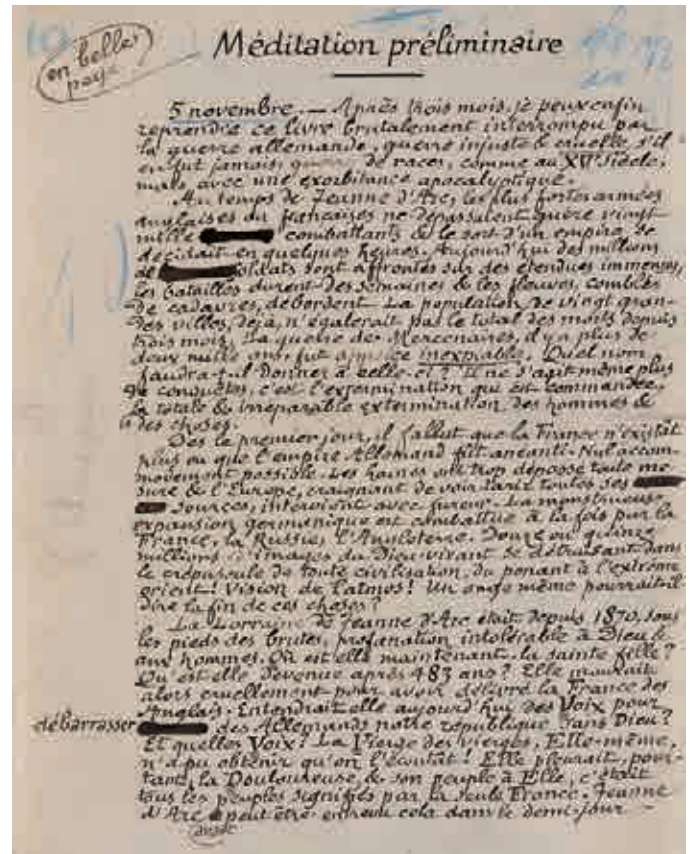 en belle
page
Méditation préliminaire
5 novembre. — Après trois mois, je peux enfin
reprendre ce livre brutalement interrompu par
la guerre allemande, guerre injuste & cruelle, s'il
en fut jamais, guerre de races, comme au XVe siècle,
mais avec une exorbitance apocalyptique.
Au temps de Jeanne d'Arc, les plus fortes armées
anglaises ou françaises ne dépassaient guère vingt
mille combattants & le sort d'un empire se
décidait en quelques heures. Aujourd'hui des millions
de soldats sont affrontés sur des étendues immenses,
les batailles durent des semaines & les fleuves, comblés
de cadavres, débordent. La population de vingt gran-
des villes, déjà, n'égalerait pas le total des morts depuis
trois mois. La guerre des Mercenaires, il y a plus de
deux mille ans, fut appelée inexpiable. Quel nom
faudra-t-il donner à celle-ci? Il ne s'agit même plus
de conquêtes, c'est l'extermination qui est commandée,
la totale & irréparable extermination des hommes &
des choses.
Dès le premier jour, il fallut que la France n'existât
plus ou que l'empire Allemand fût anéanti. Nul accom-
movement possible. Les haines ont trop dépassé toute me-
sure & l'Europe, craignant de voir tarir toutes ses
sources, intervient avec fureur. La monstrueuse
expansion germanique est combattue à la fois par la
France, la Russie, l'Angleterre. Douze ou quinze
millions d'images du Dieu vivant se détruisant dans
le crépuscule de toute civilisation, du ponant à l'extrême
orient! Vision de Patmos! Un ange même pourrait-il
dire la fin de ces choses?
La Lorraine de Jeanne d'Arc était depuis 1870, sous
les pieds des brutes, profanation intolérable à Dieu &
aux hommes. Où est-elle maintenant, la sainte fille?
Qu'est-elle devenue après 483 ans? Elle mourait
alors cruellement pour avoir délivré la France des
Anglais. Entendrait-elle aujourd'hui des Voix pour
débarrasser des Allemands notre république sans Dieu?
Et quelles Voix! La Vierge des vierges, Elle-même,
n'a pu obtenir qu'on l'écoutât! Elle pleurait, pour-
tant, la Douloureuse, & son peuple à Elle, c'était
tous les peuples signifiés par la seule France. Jeanne
d'Arc a peut-être entrevu cela dans le demi-jour